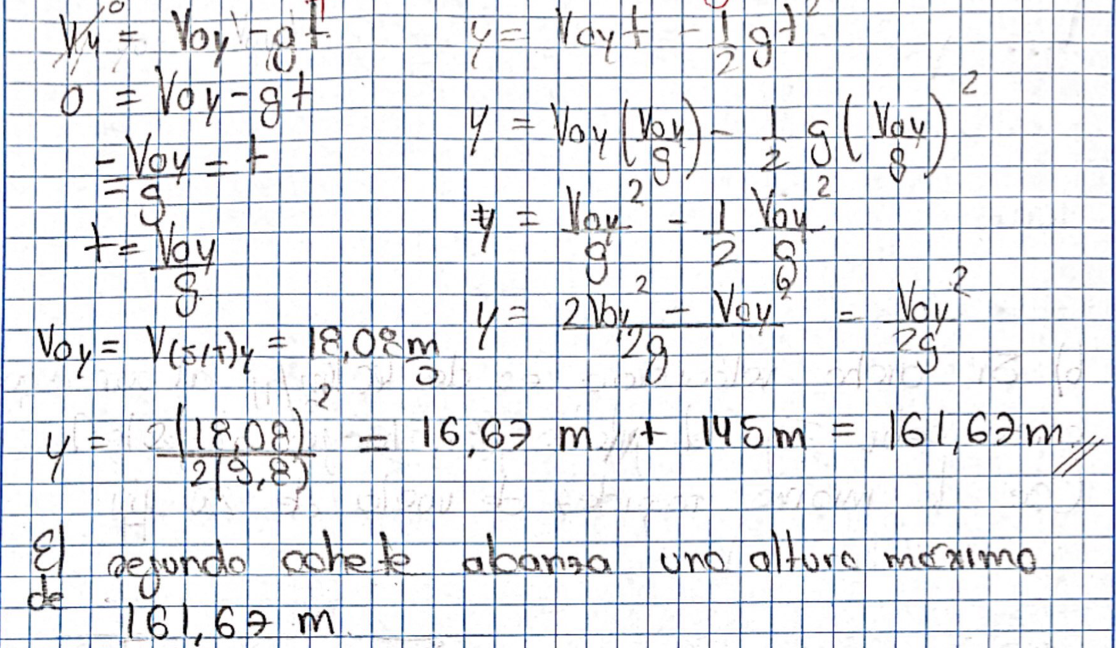 Vy⁰ = Voy - gt
0 = Voy - gt
-Voy/g = t
t = Voy/g
y = Voyt - 1/2 gt²
y = Voy(Voy/g) - 1/2 g(Voy/g)²
y = Voy²/g - 1/2 Voy²/g
y = (2Voy² - Voy²)/2g = Voy²/2g
Voy = V(S/T)y = 18,08 m/s
y = (18,08)²/2(9,8) = 16,67 m + 145 m = 161,67 m //
El segundo cohete alcanza una altura máxima
de
161,67 m